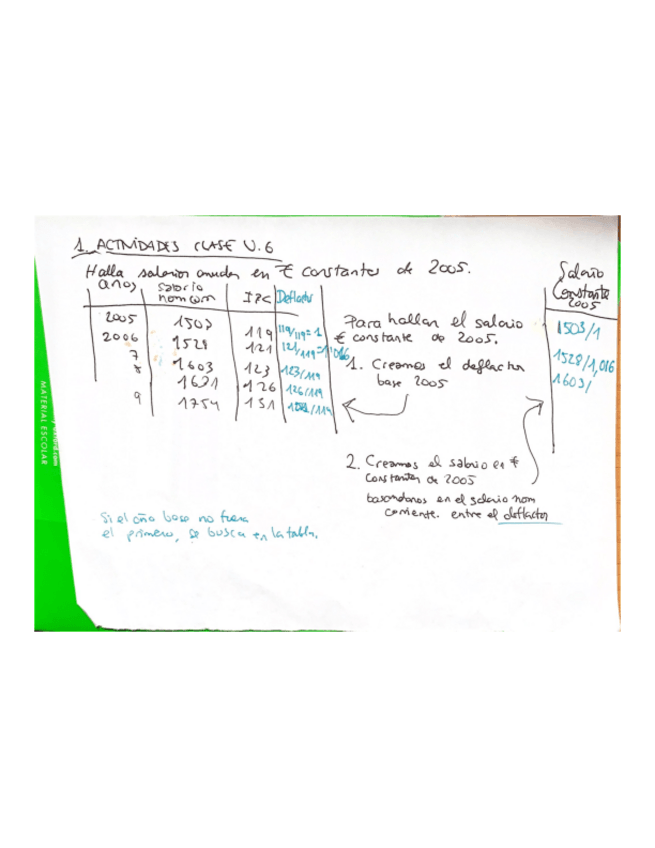 1. ACTIVIDADES CLASE U.6
Halla salarios anuales en € constantes de 2005.
años salario nom corr IPC Deflactor
2005 1503 119 119/119=1
2006 1528 121 121/119=1'016
7 1603 123 123/119
8 1621 126 126/119
9 1754 131 131/119
Para hallar el salario
€ constante de 2005.
1. Creamos el deflactor
base 2005
2. Creamos el salario en €
constantes de 2005
basandonos en el salario nom
corriente. entre el deflactor
Salario
Constante
2005
1503/1
1528/1,016
1603/
Si el año base no fuera
el primero, se busca en la tabla.
MATERIAL ESCOLAR